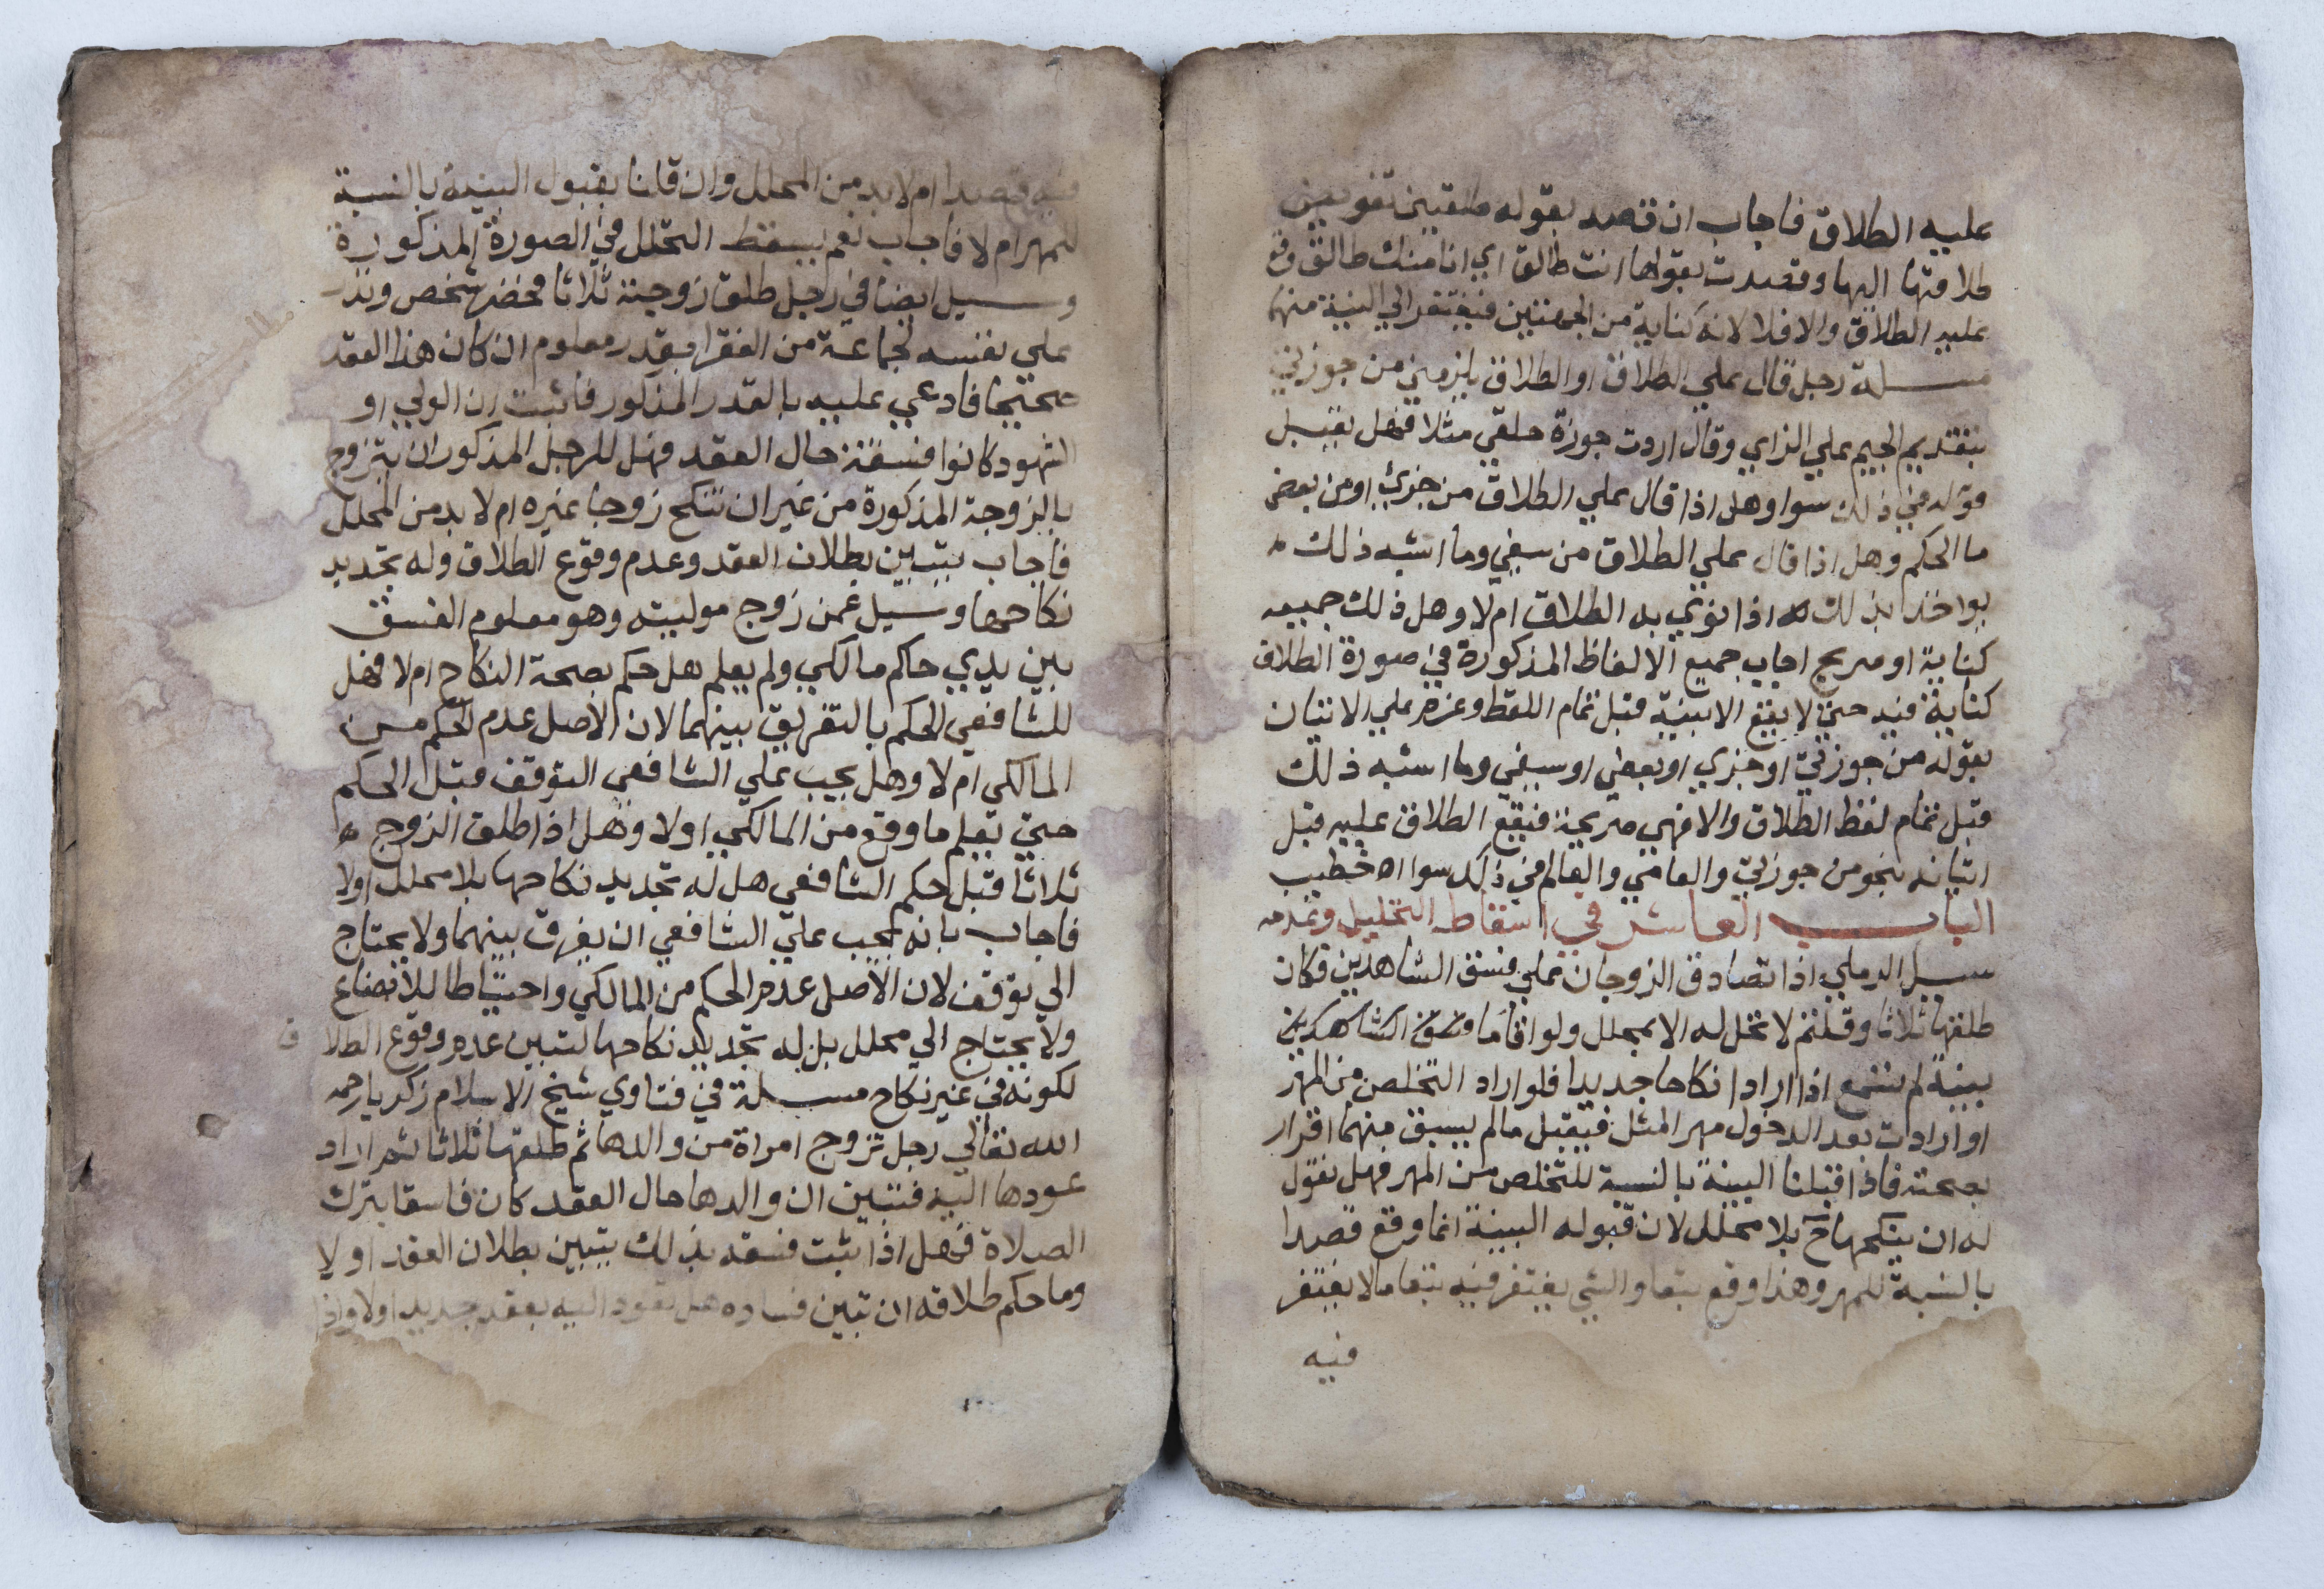 عليه الطلاق فاجاب ان قصد بقوله طلقيني تفويض
طلاقها اليها وقصدت بقولها انت طالق اي انا منك طالق وقع
عليه الطلاق والا فلا لانه كناية من الجهتين فيفتقر الي النية منهما
مسلة رجل قال علي الطلاق او الطلاق يلزمني من جوزتي
بتقديم الجيم علي الزاي وقال اردت جوزة حلقي مثلا فهل يقبل
قوله في ذلك سوا وهل اذا قال علي الطلاق من جزي او من بعضي
ما الحكم وهل اذا قال علي الطلاق من سيفي وما اشبه ذلك
يواخذ بذلك اذا نوي به الطلاق ام لا وهل ذلك جميعه
كناية او صريح اجاب جميع الالفاظ المذكورة في صورة الطلاق
كناية فيه حتي لا يقع الا بنية قبل تمام اللفظ وعزم علي الاتيان
بقوله من جوزتي او جزي او بعضي او سيفي وما اشبه ذلك
قبل تمام لفظ الطلاق والا فهي صريحة فيقع الطلاق عليه قبل
اتيانه بنحو من جوزتي والعامي والعالم في ذلك سوا اه خطيب
الباب العاشر في اسقاط التحليل وعدمه
سيل الرملي اذا تصادق الزوجان علي فسق الشاهدين وكان
طلقها ثلاثا وقلتم لا تحل له الا بمحلل ولو اقاما وفسق الشاهدين
بينة لم تسمع اذا ارادا نكاحا جديدا فلو اراد التخلص من المهر
او ارادت بعد الدخول مهر المثل فيقبل مالم يسبق منهما اقرار
بصحته فاذا قبلنا البينة بالنسبة للتخلص من المهر فهل نقول
له ان ينكحها ح بلا محلل لان قبوله البينة انما وقع قصدا
بالنسبة للمهر وهذا وقع تبعا والشي يغتفر فيه تبعا ما لا يغتفر
فيه
فيه قصدا ام لا بد من المحلل وان قلنا بقبول البينة بالنسبة
للمهر ام لا فاجاب نعم يسقط التحلل في الصورة المذكورة
وسيل ايضا في رجل طلق زوجته ثلاثا فحضر شخص ونذر
علي نفسه لجماعة من الفقرا بقدر معلوم ان كان هذا العقد
صحيحا فادعي عليه بالقدر المذكور فاثبت ان الولي او
الشهود كانوا فسقة حال العقد فهل للرجل المذكور ان يتزوج
بالزوجة المذكورة من غير ان تنكح زوجا غيره ام لا بد من المحلل
فاجاب يتبين بطلان العقد وعدم وقوع الطلاق وله تجديد
نكاحها وسيل عمن زوج موليته وهو معلوم الفسق
بين يدي حاكم مالكي ولم يعلم هل حكم بصحة النكاح ام لا فهل
للشافعي الحكم بالتفريق بينهما لان الاصل عدم الحكم من
المالكي ام لا وهل يجب علي الشافعي التوقف قبل الحكم
حتي يعلم ما وقع من المالكي اولا وهل اذا طلق الزوج
ثلاثا قبل حكم الشافعي هل له تجديد نكاحها بلا محلل اولا
فاجاب بانه يجب علي الشافعي ان يفرق بينهما ولا يحتاج
الي توقف لان الاصل عدم الحكم من المالكي واحتياطا للابضاع
ولا يحتاج الي محلل بل له تجديد نكاحها لتبين عدم وقوع الطلاق
لكونه في غير نكاح مسلة في فتاوي شيخ الاسلام زكريا رحمه
الله تعالي رجل تزوج امراة من والدها ثم طلقها ثلاثا ثم اراد
عودها اليه فتبين ان والدها حال العقد كان فاسقا بترك
الصلاة فهل اذا ثبت فسقه بذلك يتبين بطلان العقد اولا
وما حكم طلاقه ان تبين فساده هل تعود اليه بعقد جديد اولا واذا